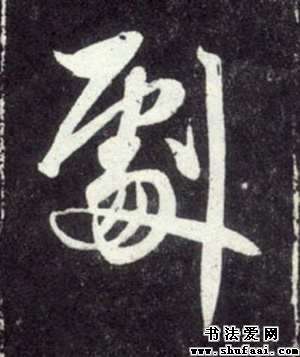 劇
书法爱网
www.shufaai.com